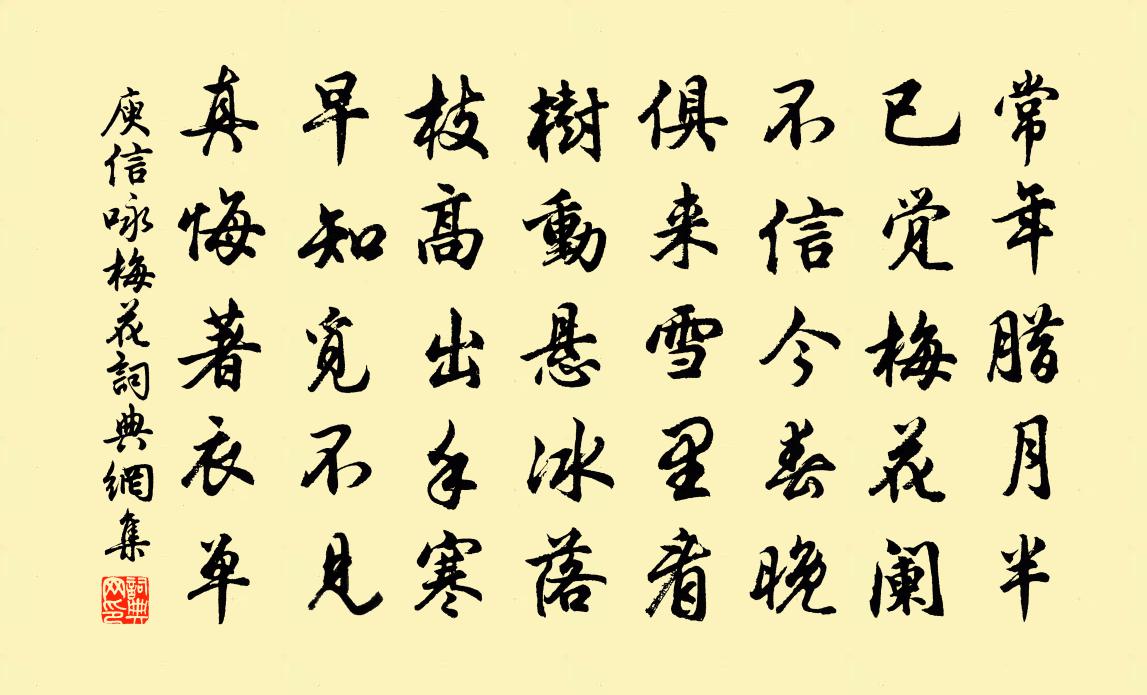 常年腊月半
已觉梅花阑
不信今春晚
俱来雪里看
樹動悬冰落
枝高出手寒
早知觅不見
真悔著衣单
庾信咏梅花詞典網集
詞典網印